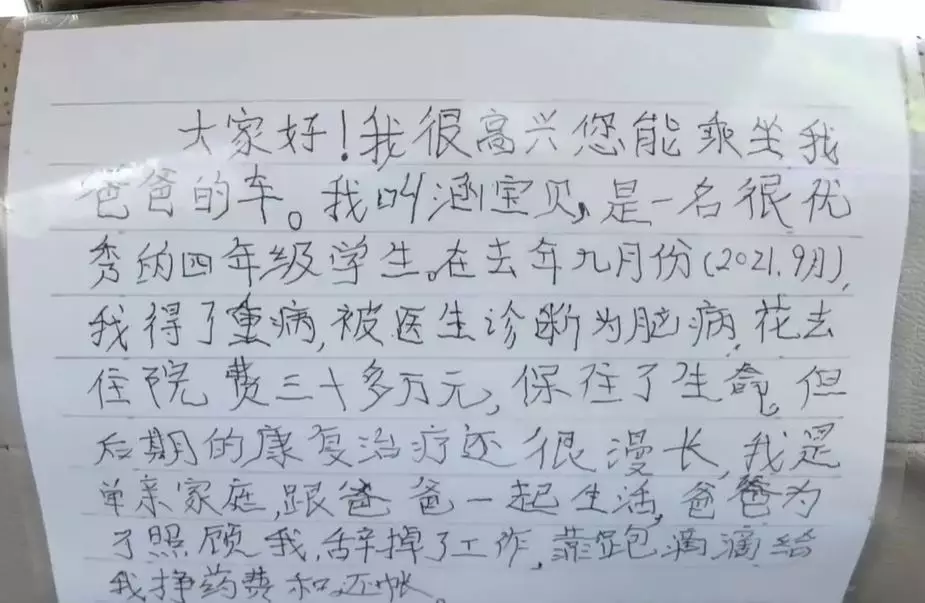 大家好！我很高兴您能乘坐我
爸爸的车。我叫涵宝贝，是一名很优
秀的四年级学生。在去年九月份(2021.9月),
我得了重病,被医生诊断为脑病,花去
住院费三十多万元,保住了生命。但
后期的康复治疗还很漫长,我是
单亲家庭,跟爸爸一起生活,爸爸为
了照顾我,辞掉了工作,靠跑滴滴给
我挣药费和还帐。